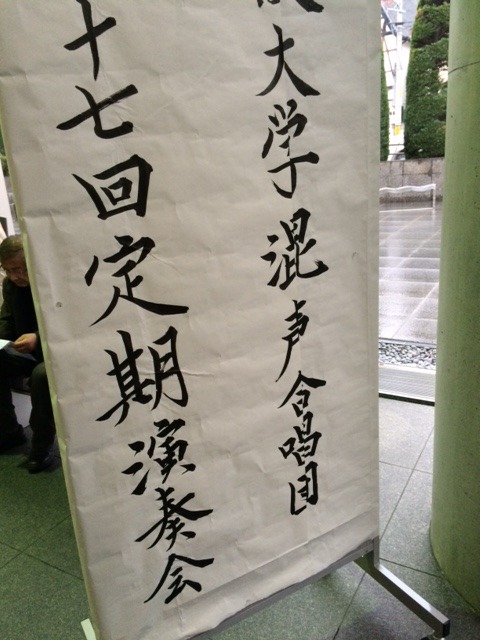 大学混声合唱団
十七回定期演奏会